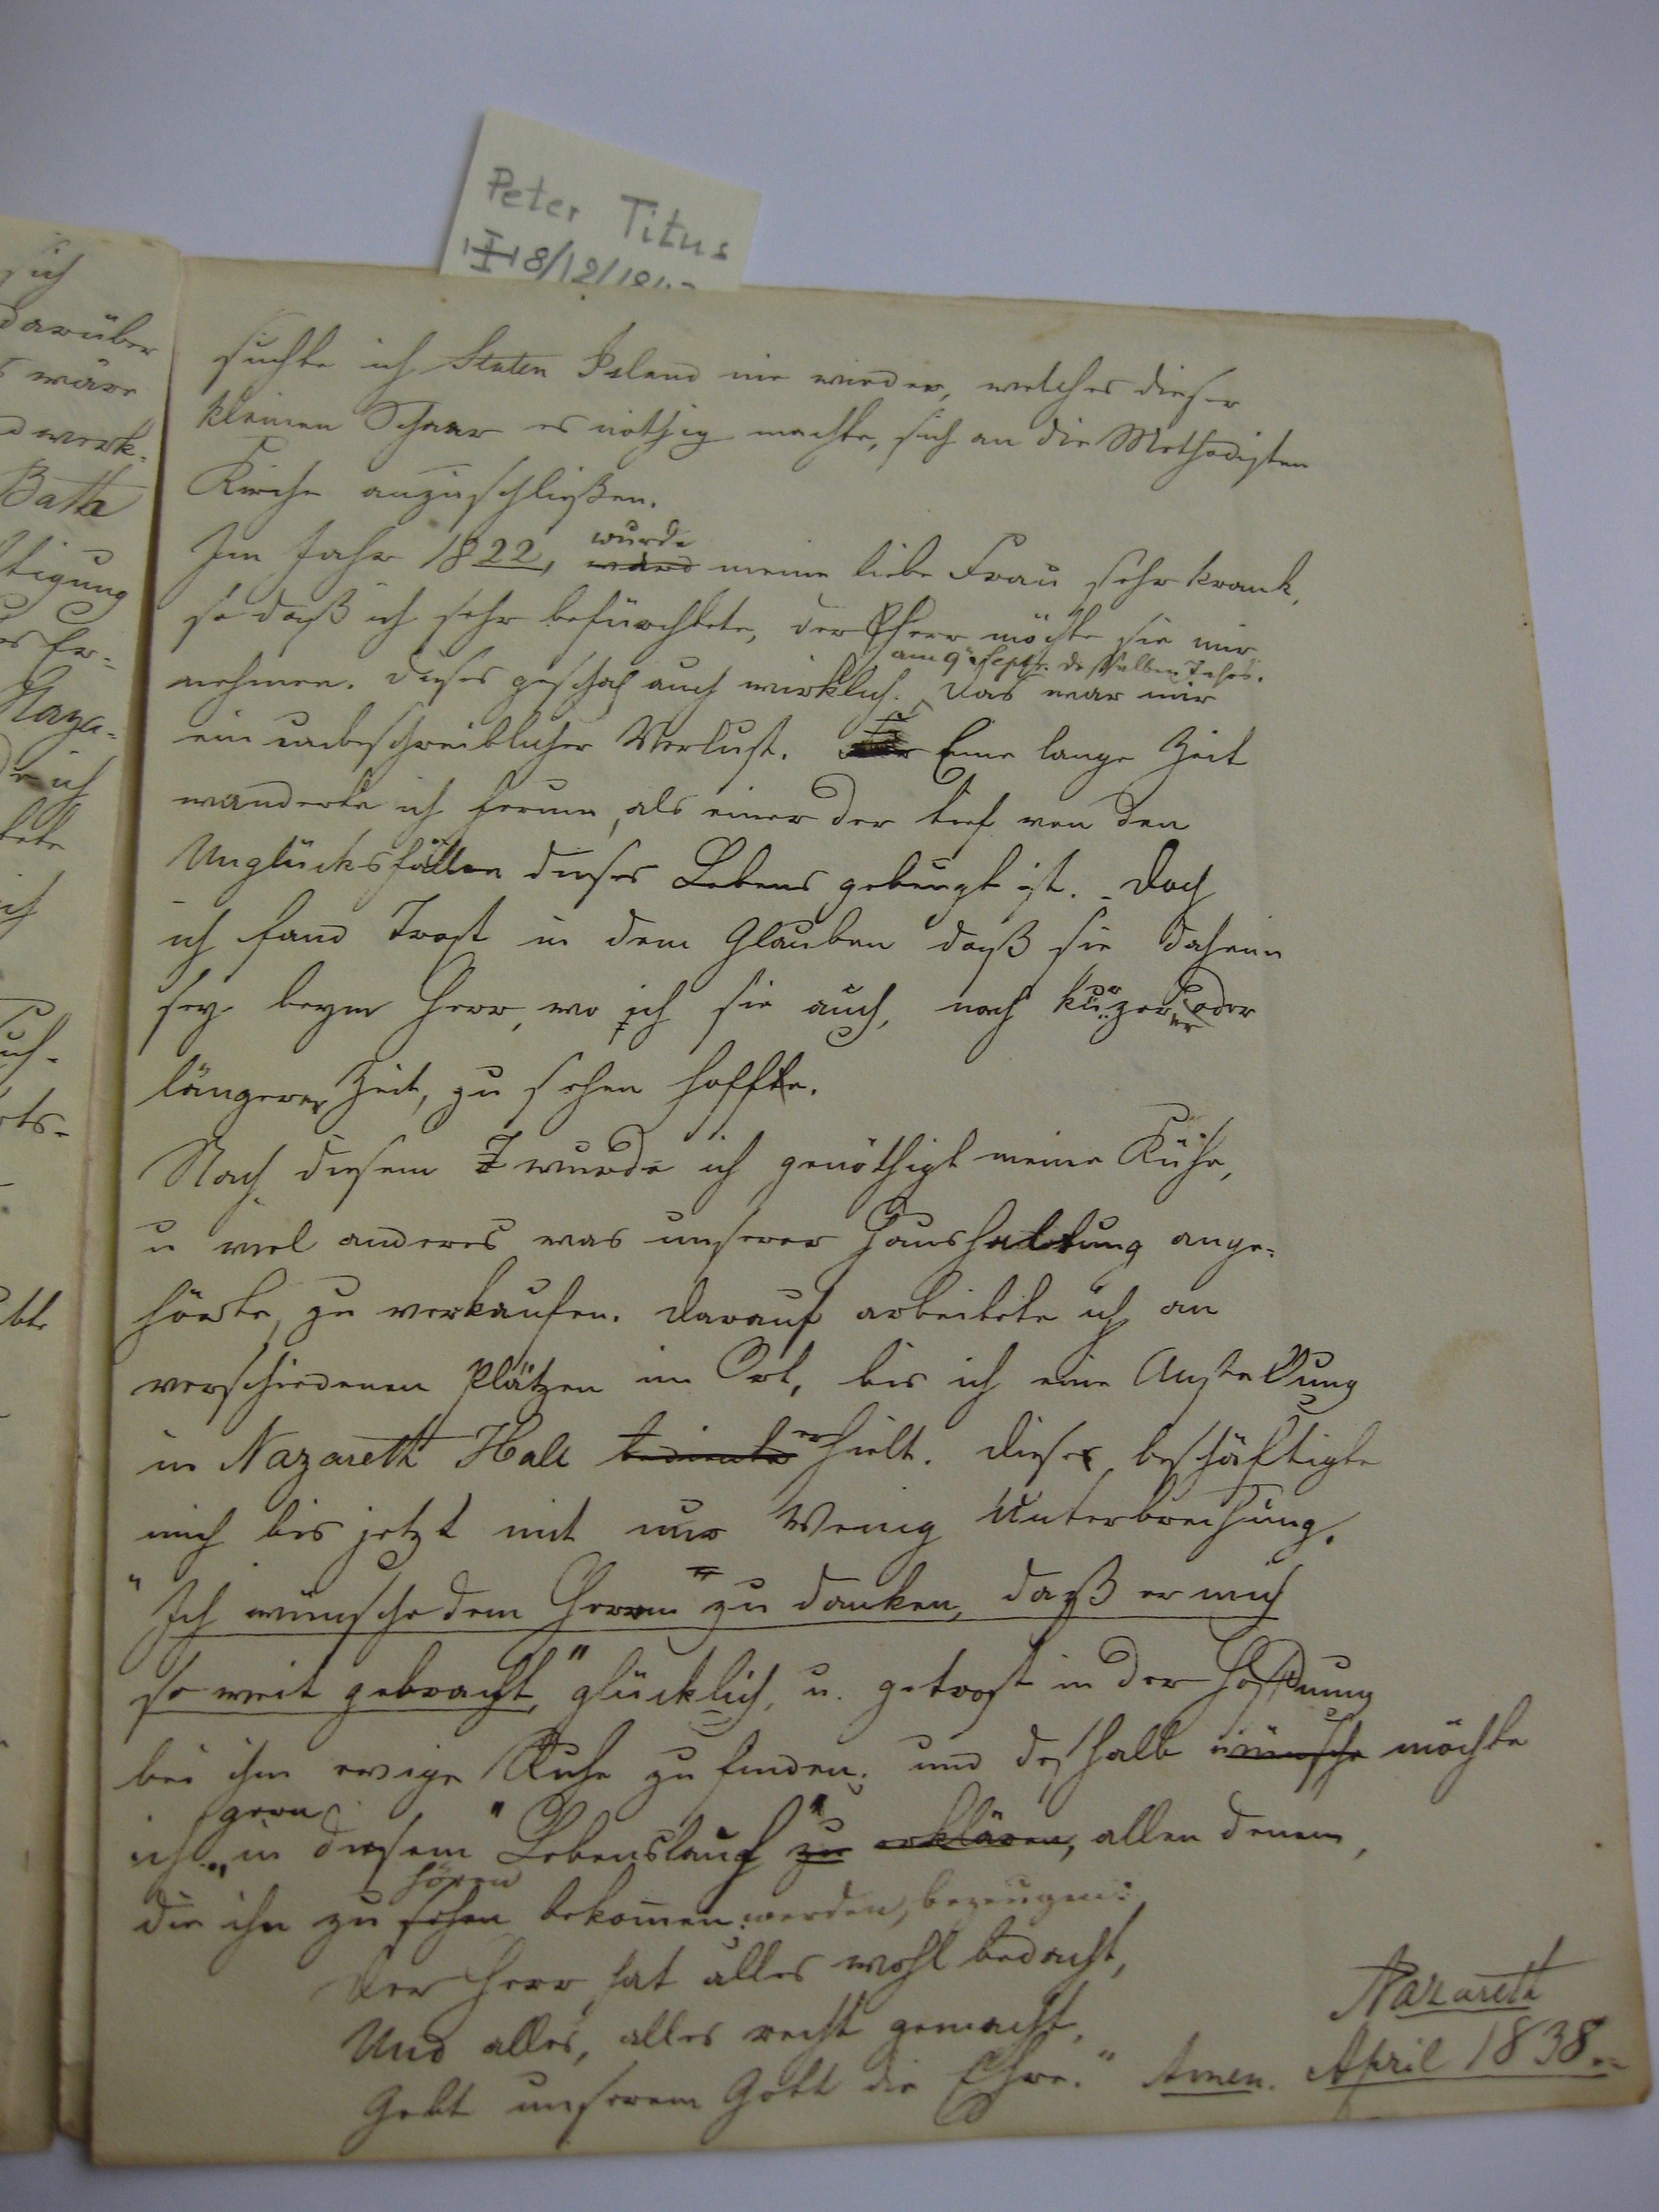 Peter Titus
ich
darüber
wäre
werk-
Bath
tigung
Naza-
ich
suchte ich Staten Island nie wieder, welches dieser
kleinen Schaar es nöthig machte, sich an die Methodisten
Kirche anzuschließen.
wurde
Im Jahr 1822, ward meine liebe Frau sehr krank,
so daß ich sehr befürchtete, der Herr möchte sie mir
am 9n Septr. desselben Jahrs.
nehmen. Dieses geschah auch wirklich. Das war mir
ein unbeschreiblicher Verlust. Eine lange Zeit
wanderte ich herum, als einer der tief von den
Unglücksfällen dieses Lebens gebeugt ist. - Doch
ich fand Trost in dem Glauben daß sie daheim
sey beym Herr, wo ich sie auch, nach kürzerer oder
längerer Zeit, zu sehen hoffte.
Nach diesem wurde ich genöthigt meine Kühe,
u viel anderes was unserer Haushaltung ange-
hörte, zu verkaufen. Darauf arbeitete ich an
verschiedenen Plätzen im Ort, bis ich eine Anstellung
in Nazareth Hall bediente erhielt. Dieses beschäftigte
mich bis jetzt mit nur Wenig Unterbrechung.
"Ich wünsche dem Herrn" zu danken, daß er mich
so weit gebracht," glücklich, u. getrost in der Hoffnung
bei ihm ewige Ruhe zu finden; und deßhalb wünsche möchte
gern
ich in diesem "Lebenslauf" zu erklären, allen denen,
hören
die ihn zu sehen bekommen werden, bezeugen:
Der Herr hat alles wohl bedacht,
Und alles, alles recht gemacht,
Gebt unserem Gott die Ehre." Amen.
Nazareth
April 1838.